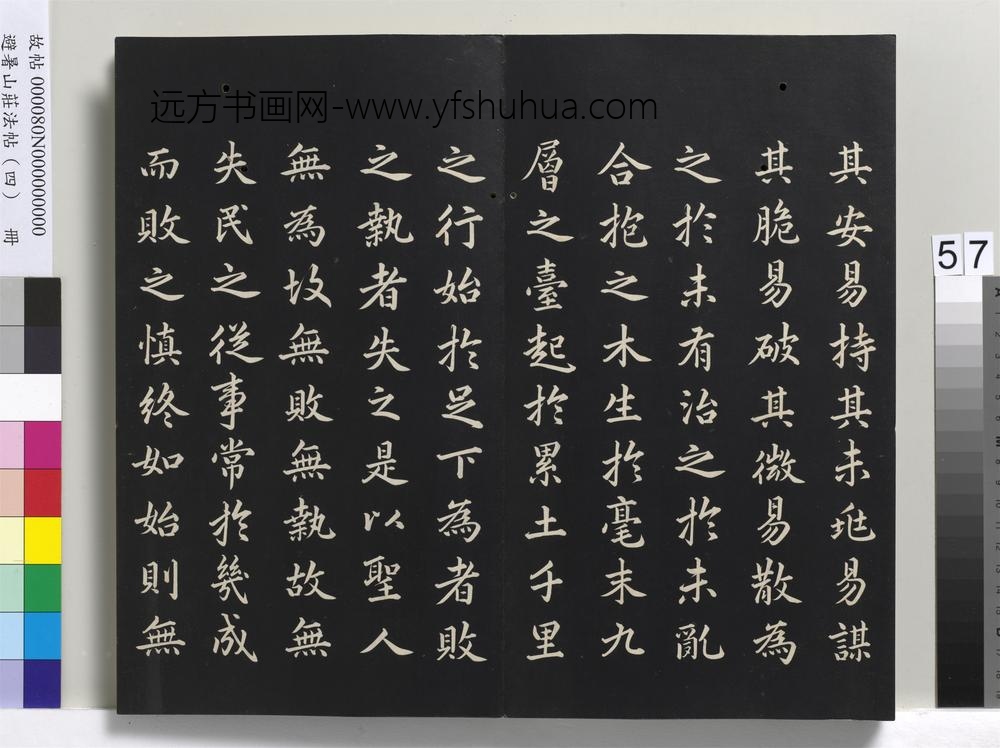 远方书画网-www.yfshuhua.com
其安易持其未兆易謀
其脆易破其微易散為
之於未有治之於未亂
合抱之木生於毫末九
層之臺起於累土千里
之行始於足下為者敗
之執者失之是以聖人
無為故無敗無執故無
失民之從事常於幾成
而敗之慎終如始則無
故帖000080N000000000
避暑山莊法帖（四） 冊
57